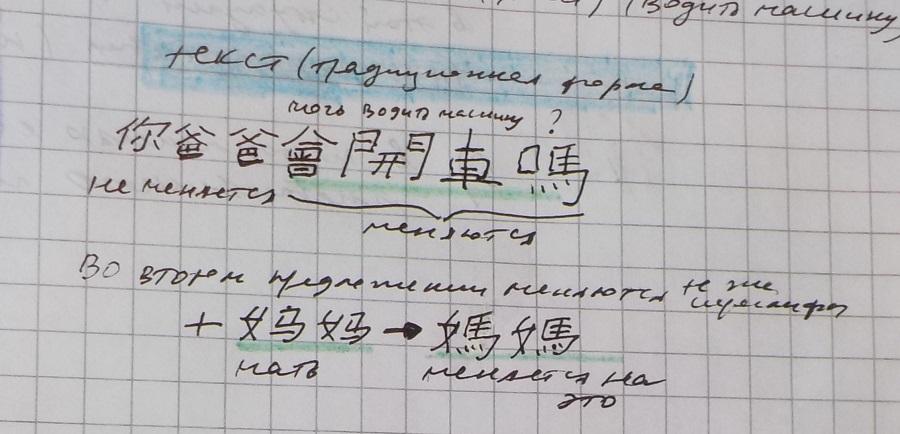 (водить машину)
текст (традиционная форма)
мочь водить машину ?
你爸爸會開車嗎
не меняется
меняются
Во втором предложении меняются те же иероглифы
+ 妈妈 → 媽媽
мать меняется на
это